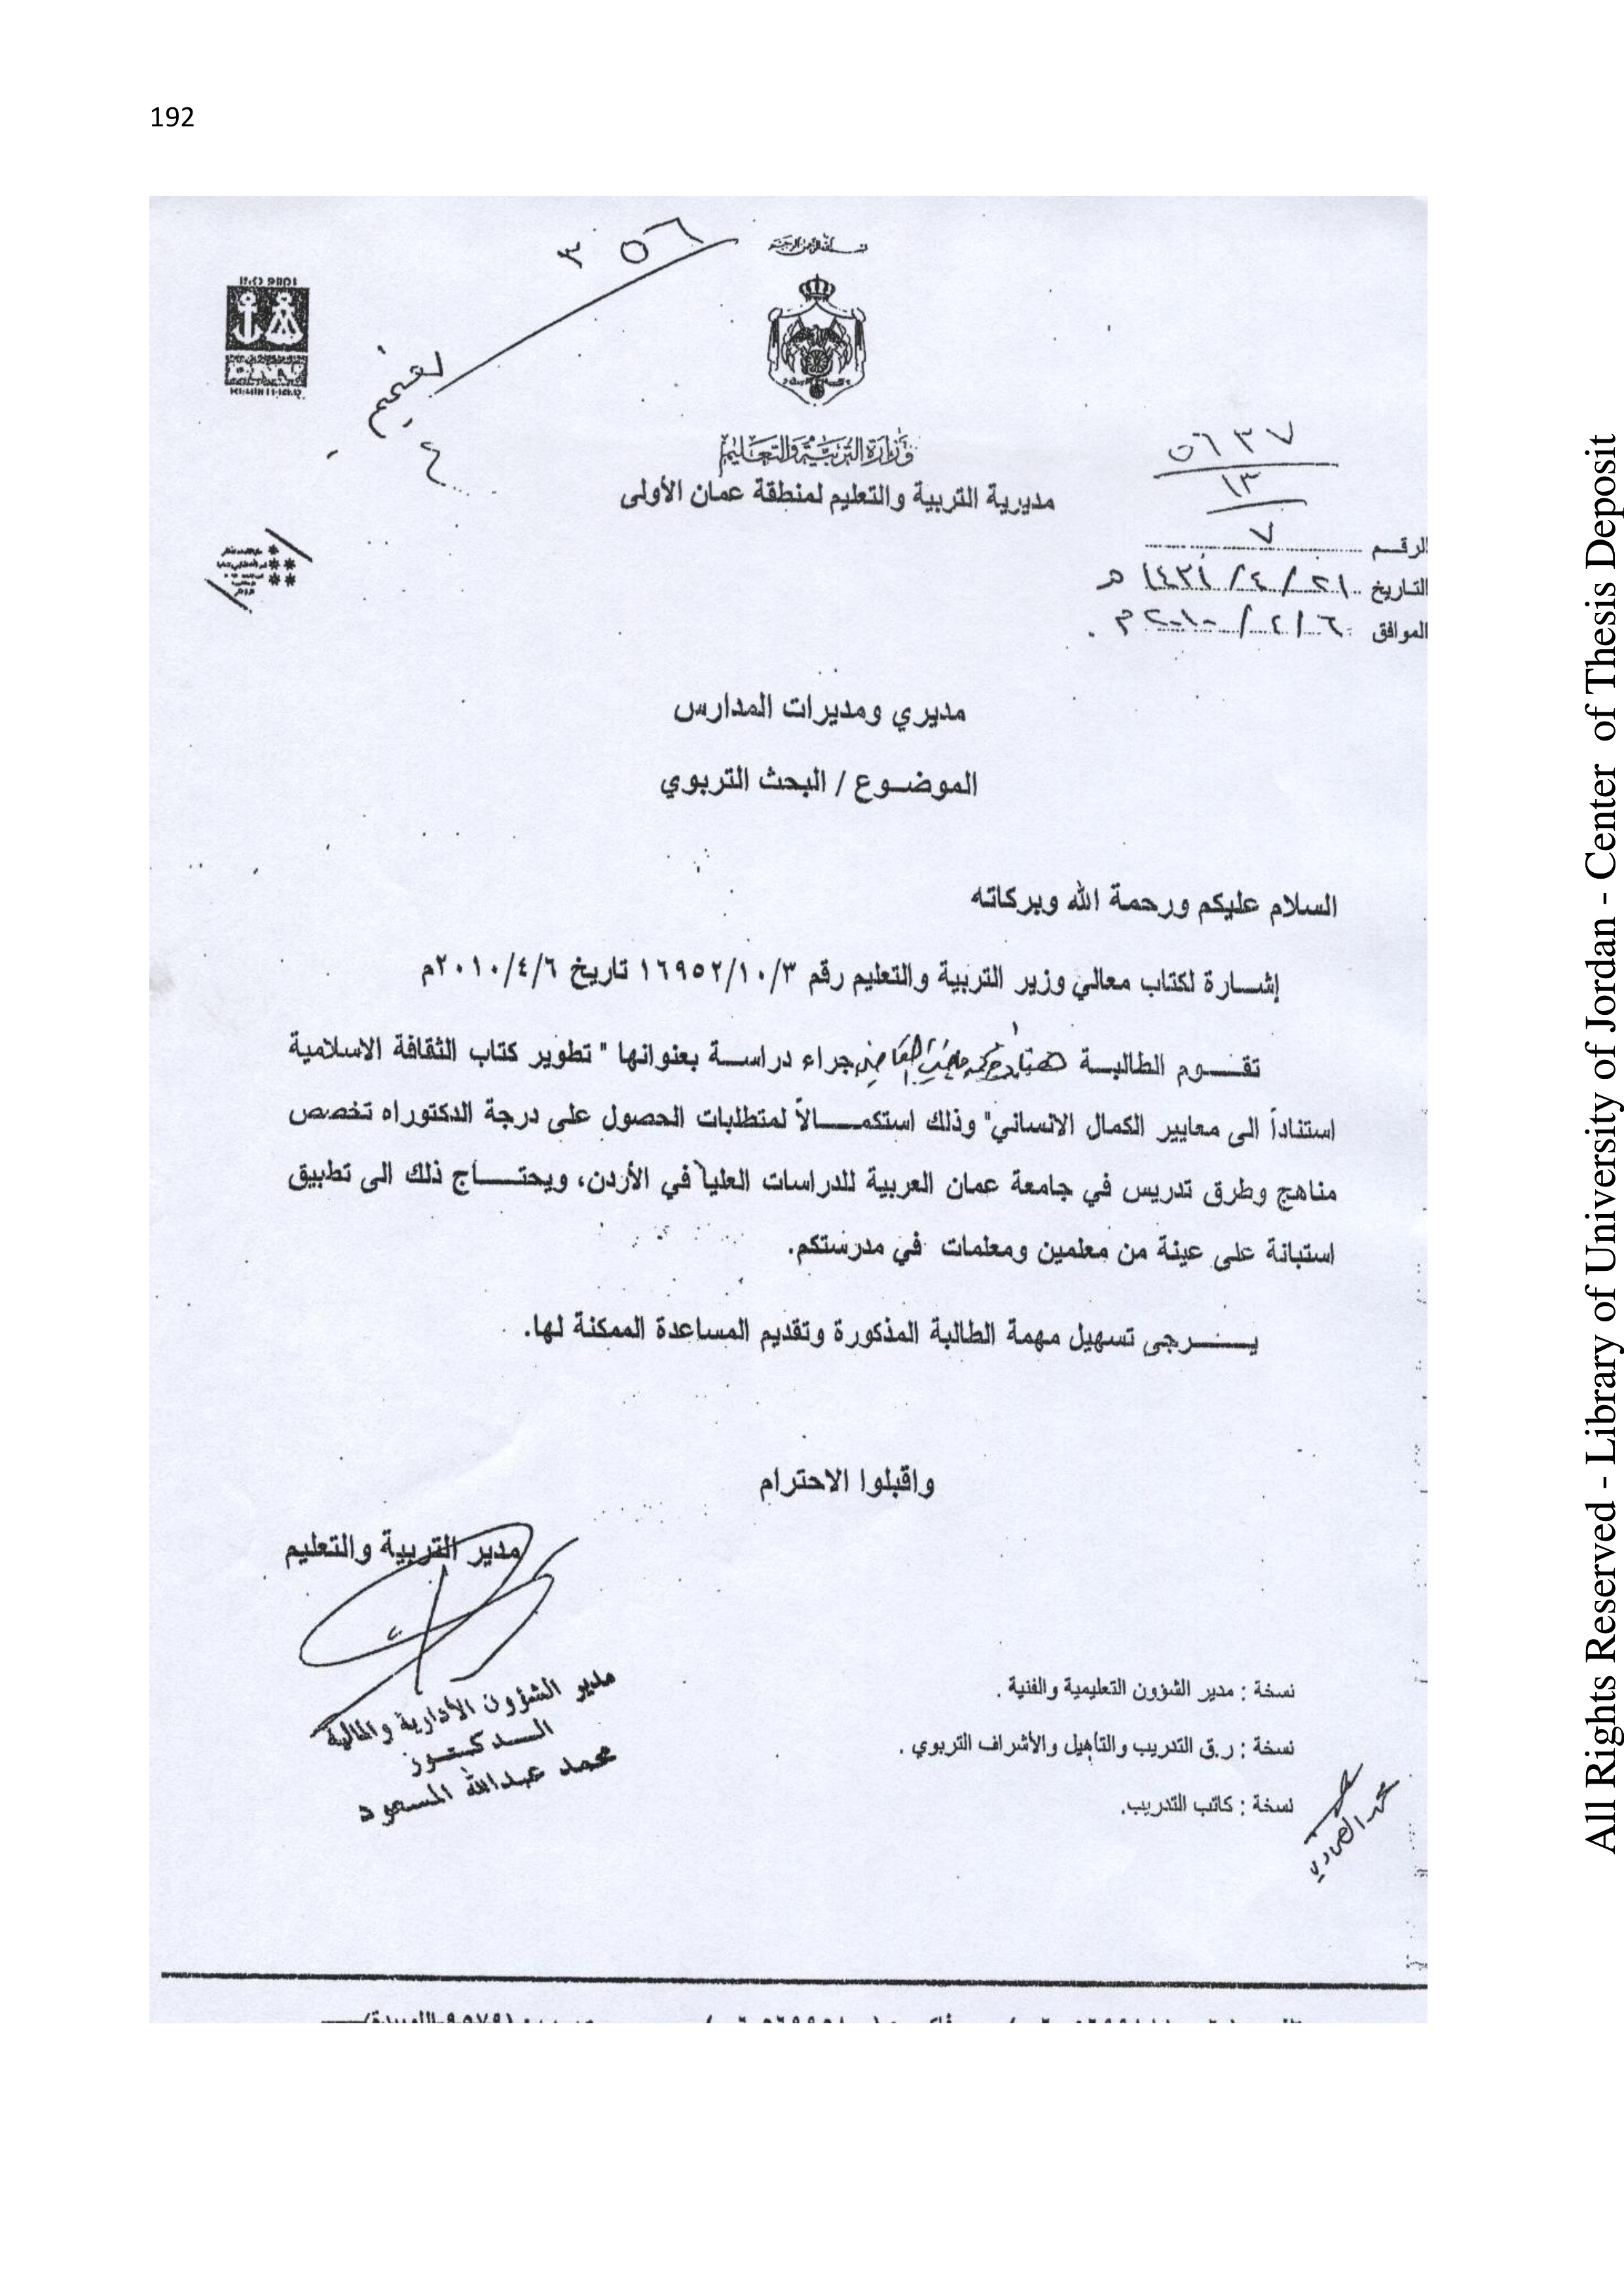 192
بسم الله الرحمن الرحيم
٣٥٦
تعميم
٤
وزارة التربية والتعليم
مديرية التربية والتعليم لمنطقة عمان الأولى
٥٦٣٧
١٣
الرقـــم ٧
التاريخ ٢١/٤/١٤٣١ هـ
الموافق ٦/٤/٢٠١٠م
مديري ومديرات المدارس
الموضـوع / البحث التربوي
السلام عليكم ورحمة الله وبركاته
إشـارة لكتاب معالي وزير التربية والتعليم رقم ١٦٩٥٢/١٠/٣ تاريخ ٢٠١٠/٤/٦م
تقـــوم الطالبـة جراء دراسـة بعنوانها " تطوير كتاب الثقافة الاسلامية
استناداً الى معايير الكمال الانساني" وذلك استكمـــالاً لمتطلبات الحصول على درجة الدكتوراه تخصص
مناهج وطرق تدريس في جامعة عمان العربية للدراسات العليا في الأردن، ويحتـــاج ذلك الى تطبيق
استبانة على عينة من معلمين ومعلمات في مدرستكم.
يـــرجى تسهيل مهمة الطالبة المذكورة وتقديم المساعدة الممكنة لها.
واقبلوا الاحترام
مدير التربية والتعليم
مدير الشؤون الأدارية والمالية
الـــدكـتـور
محمد عبدالله المسعود
نسخة : مدير الشؤون التعليمية والفنية .
نسخة : ر.ق التدريب والتأهيل والأشراف التربوي .
نسخة : كاتب التدريب.
All Rights Reserved - Library of University of Jordan - Center of Thesis Deposit